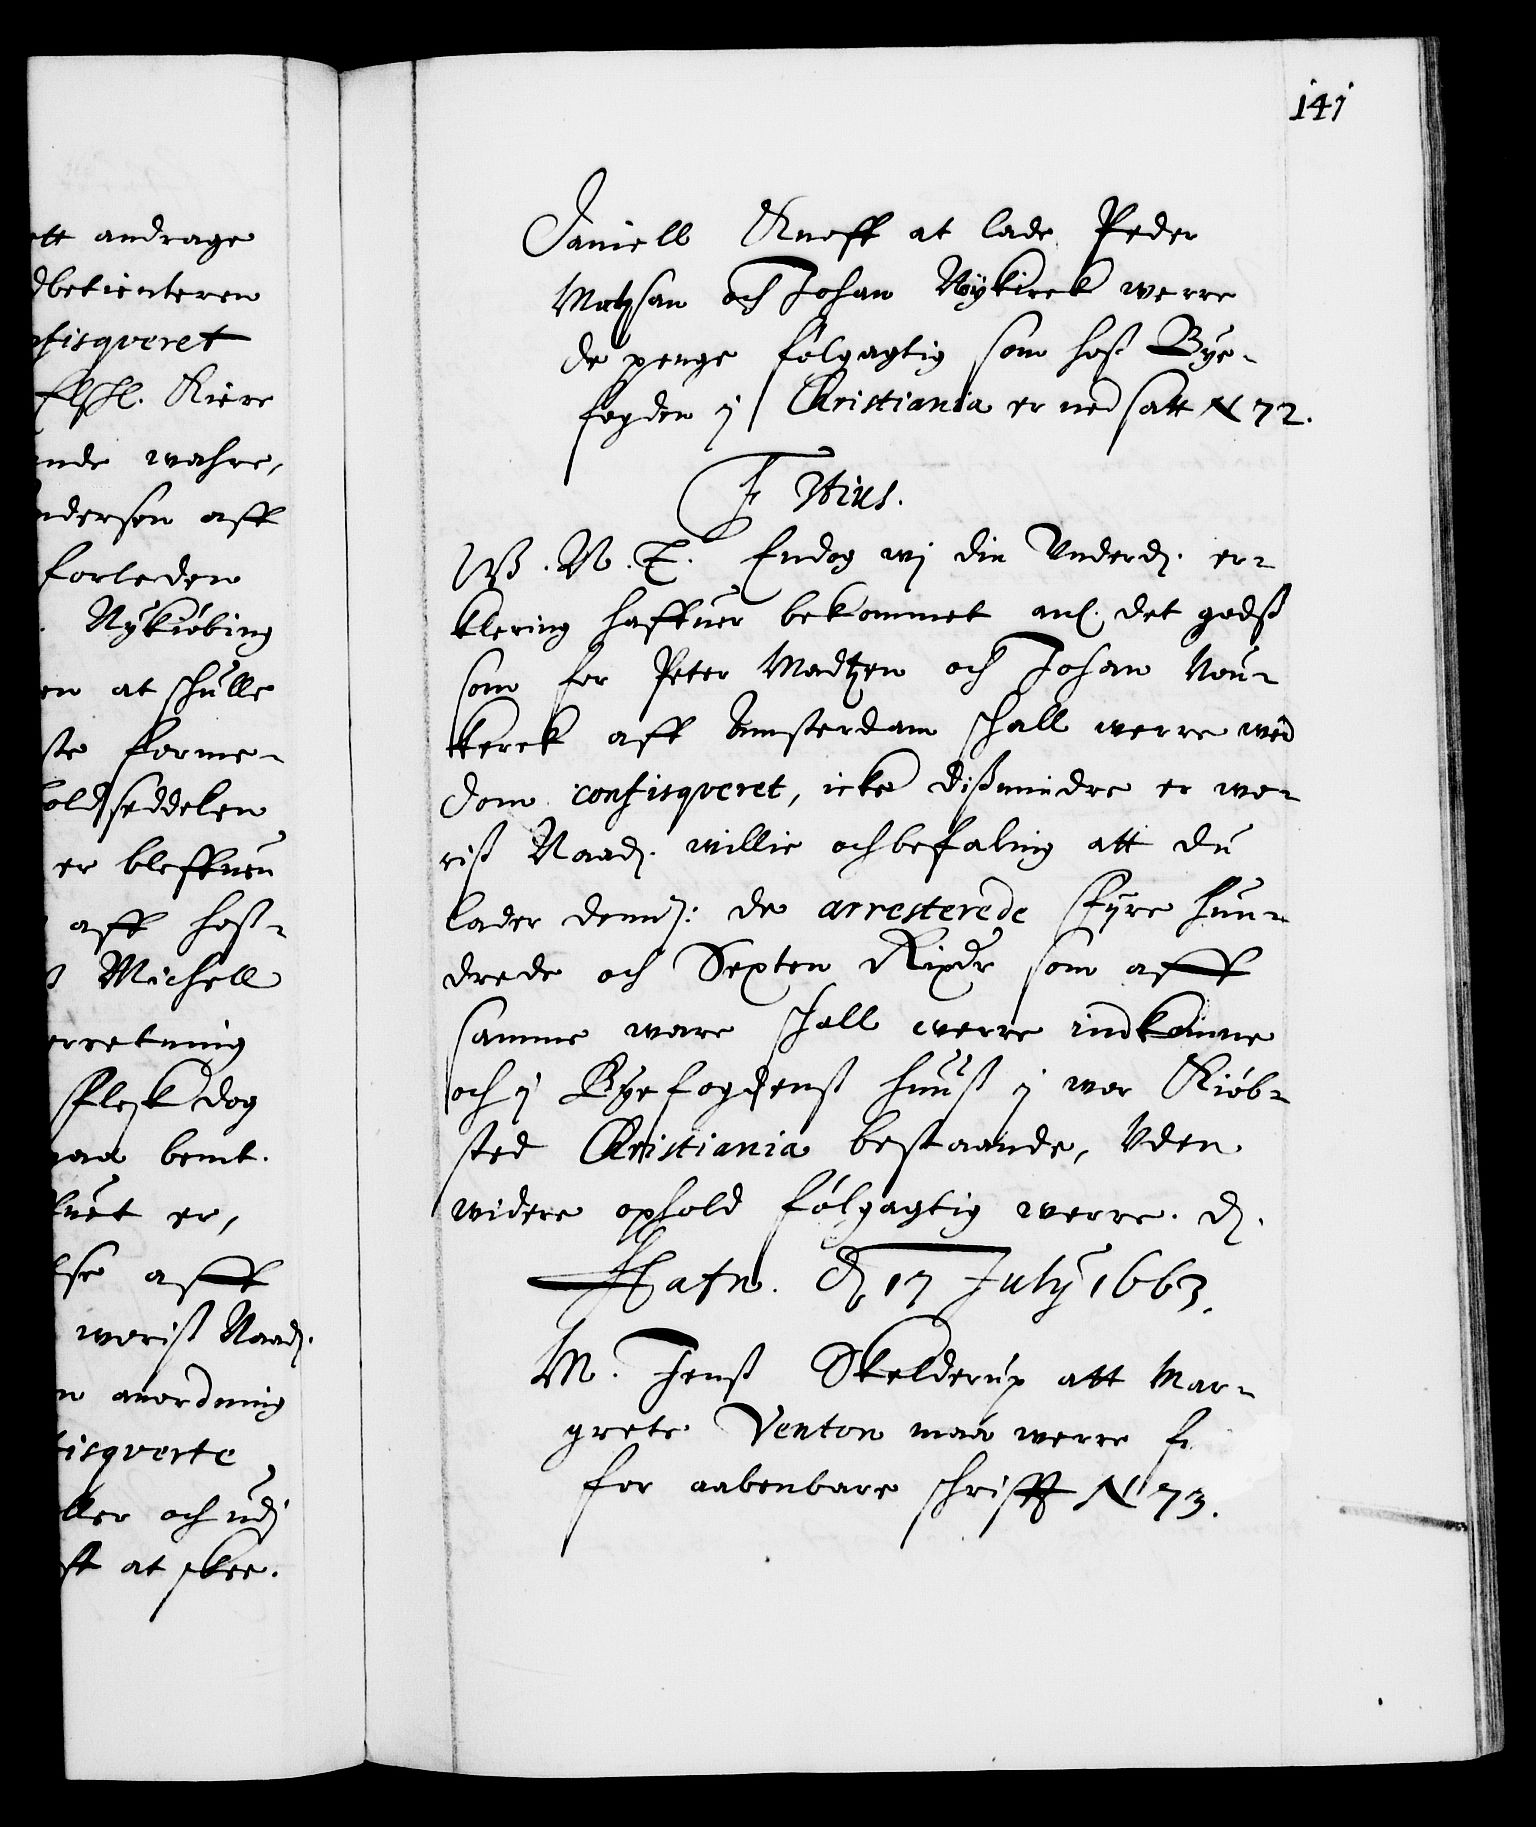 141
ett andrage
dbetienteren
nfisqveret
Kiere
ende wahre,
nderson aff
forleden
Nÿkiøbing
en at schulle
ste forme-
oldseddelen
er bleffuen
aff hoß-
Michell
erretning
flesk dog
paa bemt.
luet er,
lse aff
woriß Naad.
n anordning
fisqverte
ller och udj
st at skee.
Daniell Knoff at lade Peder
Matzsan och Johan Nÿkirck werre
de penge følgagtig som hoß Bye-
fogden ÿ Christiania er nedsatt N 72.
F 3tius.
Wß. N. T. Endog wj din Underd. er-
klering haffuer bekommet anl. det godß
som for Peter Madtzen och Johan Nou-
kerck aff Amsterdam schall werre wed
dom confisqveret, icke dißmindre er wo-
riß Naad. willie och befaling att du
lader dennem: de arresterede fÿre hun-
drede och Sexten Rixdr som aff
samme ware schall werre indkomme
och ÿ Bÿefogdenß huuß ÿ wor Kiøb-
sted Christiania bestaande, Uden
widere ophold følgagtig werre. d.
Hafn. d 17 Julÿ 1663.
M. Jenß Skelderup att Mar-
grete Venton maa werre f
for aabenbare schrifft N 73.